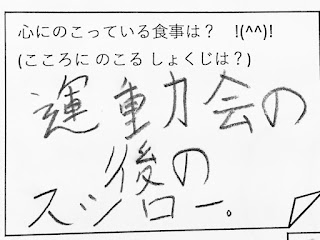 心にのこっている食事は？　!(^^)!
(こころに のこる しょくじは？)
運動会の
後の
スシロー。